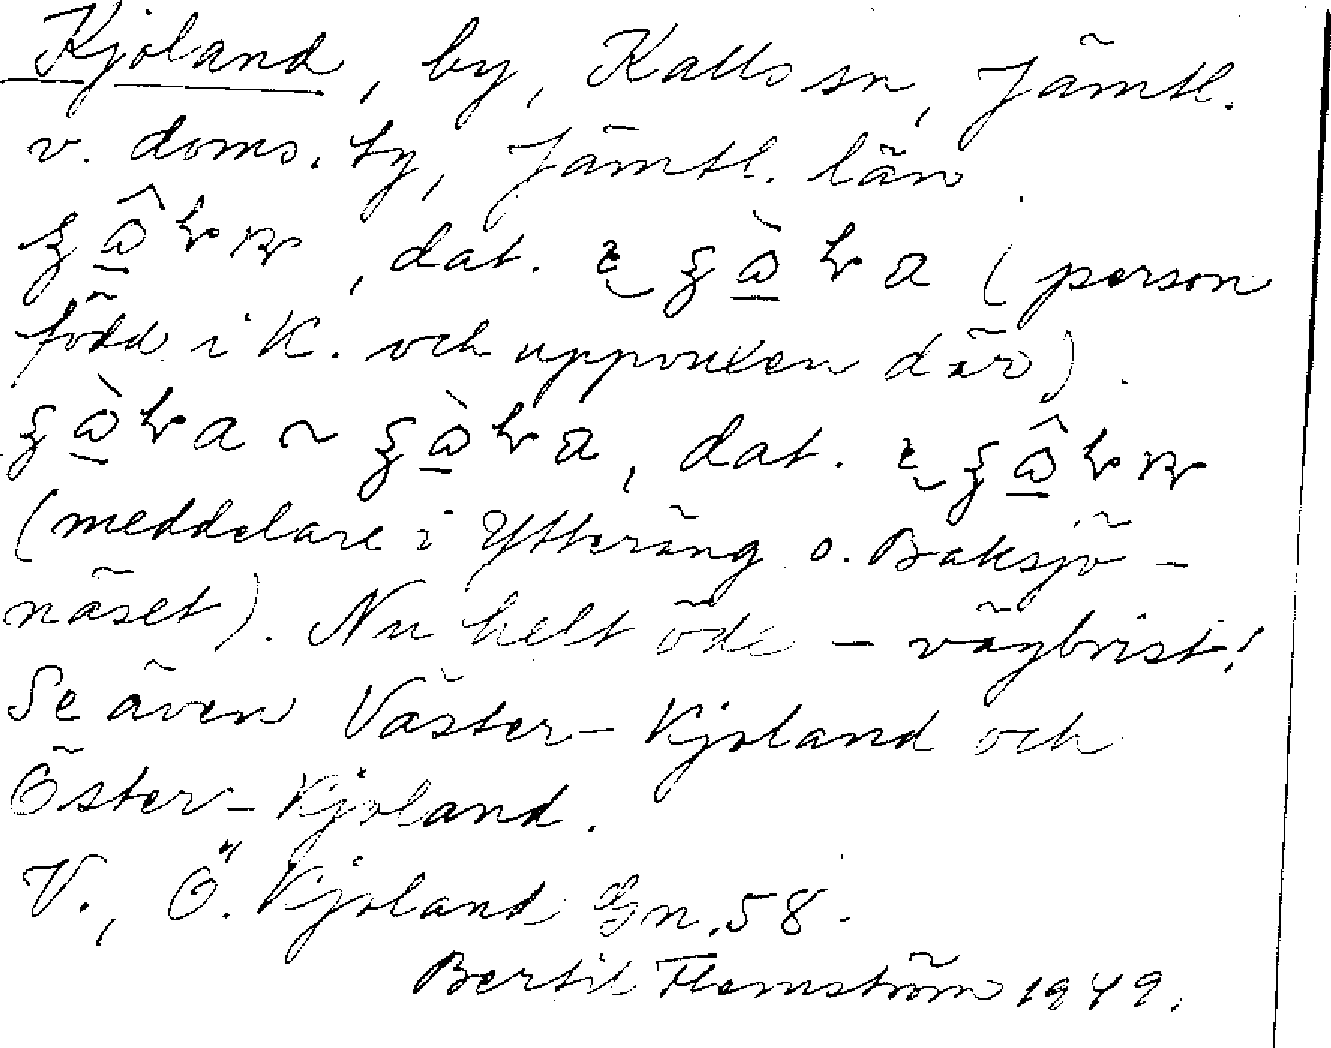 Kjoland, by, Kalls sn, Jämtl.
v. doms. by, Jämtl. län.
, dat. (person
född i K. och uppvuxen där).
~ , dat.
(meddelare i Ytteräng o. Baksjö-
näset). Nu helt öde – vägbrist!
Se även Väster-Kjoland och
Öster-Kjoland.
V., Ö. Kjoland Gn. 58.
Bertil Flemström 1949.